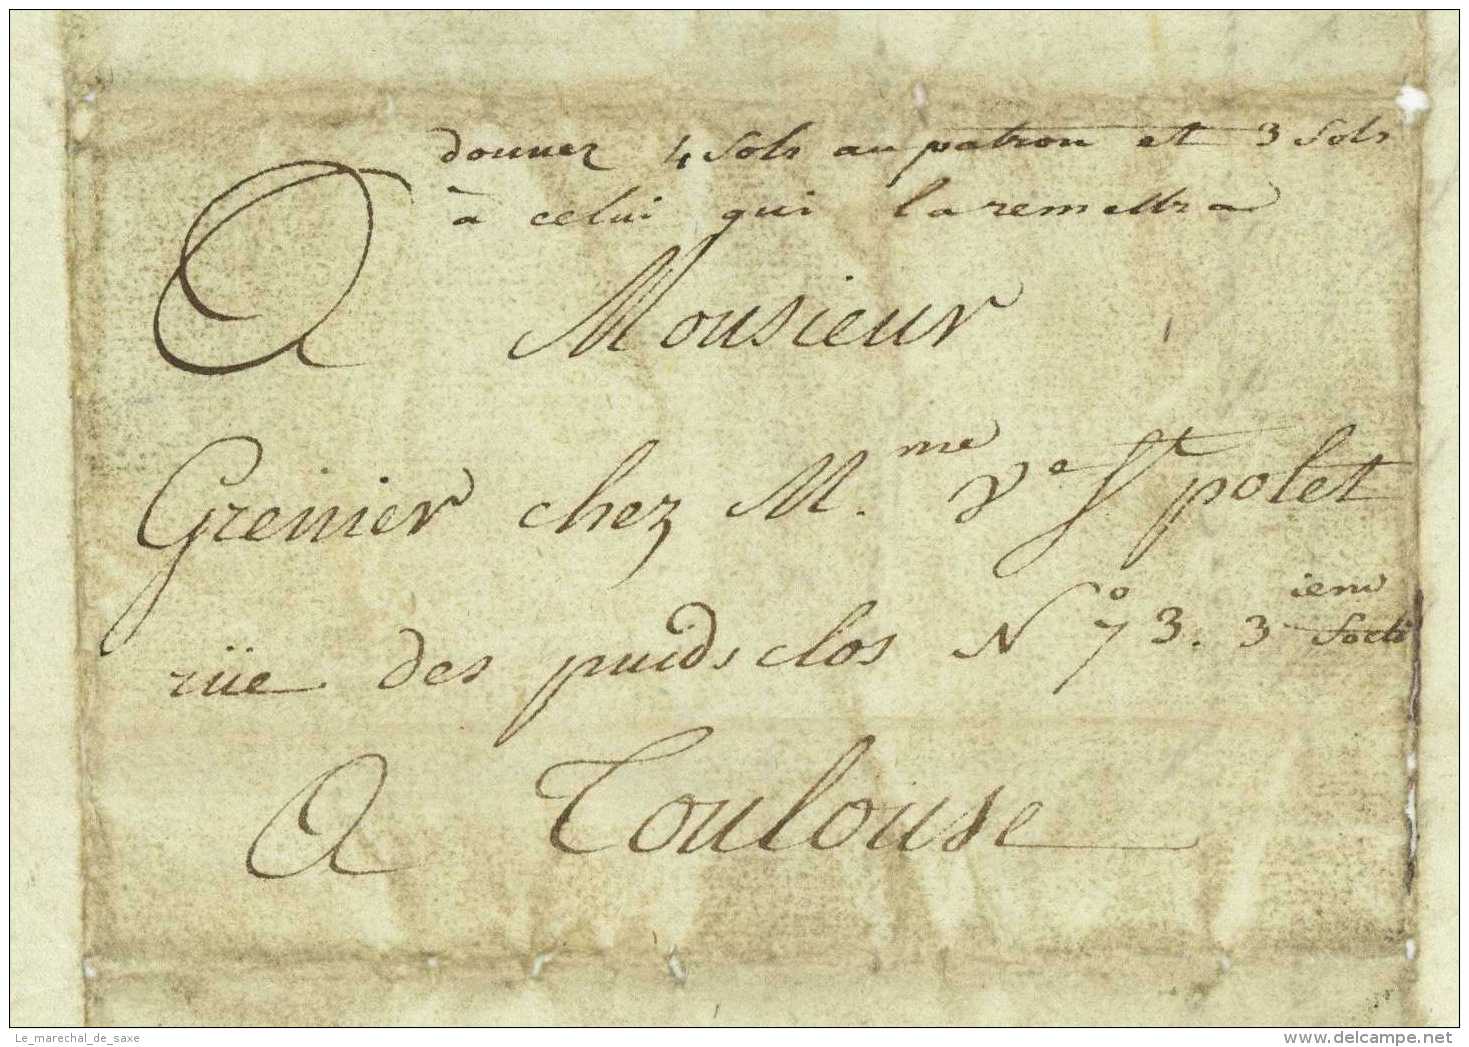 donnez 4 sols au patron et 3 sols
à celui qui la remettra
A Monsieur
Grenier chez M.me Ve St polet
rüe des puids clos No 73. 3ieme Secti
A Toulouse
Le_marechal_de_saxe
http://www.delcampe.net